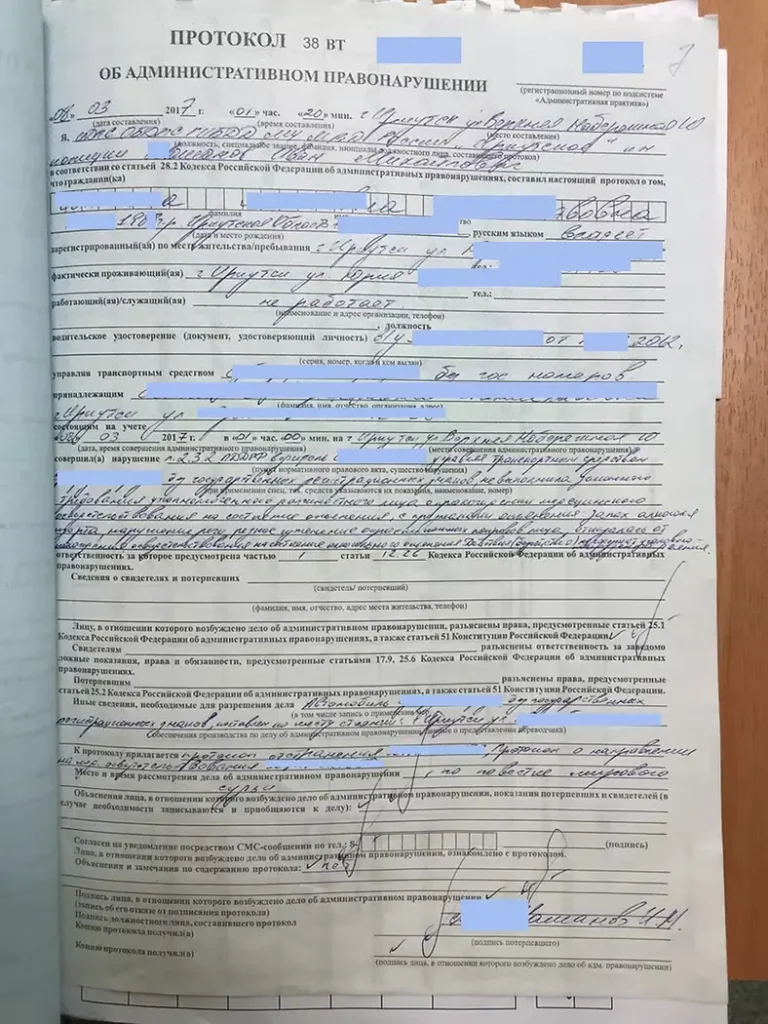 ПРОТОКОЛ 38 ВТ
ОБ АДМИНИСТРАТИВНОМ ПРАВОНАРУШЕНИИ
(регистрационный номер по подсистеме
«Административная практика»)
«08» 03 2017 г. «01» час. «20» мин. г Иркутск ул Верхняя Набережная 10
(дата составления) (время составления) (место составления)
Я,
(должность, специальное звание, фамилия, инициалы должностного лица, составившего протокол)
полиции Иван Михайлович
в соответствии со статьей 28.2 Кодекса Российской Федерации об административных правонарушениях, составил настоящий протокол о том,
что гражданин(ка)
фамилия
Иркутская русским языком владеет
(дата и место рождения)
зарегистрированный(ая) по месту жительства/пребывания г Иркутск ул
фактически проживающий(ая) г Иркутск ул тел.:
работающий(ая)/служащий(ая) не работает
(наименование и адрес организации, телефон)
, должность
водительское удостоверение (документ, удостоверяющий личность) в/у от
(серия, номер, когда и кем выдан)
управляя транспортным средством без гос номеров
принадлежащим
(фамилия, имя, отчество, организация, адрес)
г Иркутск ул
состоящим на учете
03 2017 г. в «01» час. «00» мин. на г Иркутск ул Верхняя Набережная 10
(дата, время совершения административного правонарушения) (место совершения административного правонарушения)
совершил(а) нарушение п 2.3.2 ПДД РФ управляя транспортным средством
(пункт нормативного правового акта, существо нарушения)
без государственных регистрационных знаков, не выполнила законного
(при применении спец. тех. средств указываются их показания, наименование, номер)
требования уполномоченного должностного лица о прохождении медицинского
освидетельствования на состояние опьянения, с признаками опьянения запах алкоголя
изо рта, нарушение речи, резкое изменение окраски кожных покровов лица, отказалась от
ответственность за которое предусмотрена частью 1 статьи 12.26 Кодекса Российской Федерации об административных
правонарушениях.
Сведения о свидетелях и потерпевших
(свидетель/ потерпевший)
(фамилия, имя, отчество, адрес места жительства, телефон)
Лицу, в отношении которого возбуждено дело об административном правонарушении, разъяснены права, предусмотренные статьей 25.1
Кодекса Российской Федерации об административных правонарушениях, а также статьей 51 Конституции Российской Федерации
Свидетелям разъяснены ответственность за заведомо
ложные показания, права и обязанности, предусмотренные статьями 17.9, 25.6 Кодекса Российской Федерации об административных
правонарушениях.
Потерпевшим разъяснены права, предусмотренные
статьей 25.2 Кодекса Российской Федерации об административных правонарушениях, а также статьей 51 Конституции Российской Федерации.
Иные сведения, необходимые для разрешения дела Автомобиль без государственных
регистрационных знаков, г Иркутск ул
К протоколу прилагается протокол отстранения , Протокол о направлении
на мед освидетельствования
Место и время рассмотрения дела об административном правонарушении , по повестке мирового
судьи
Объяснения лица, в отношении которого возбуждено дело об административном правонарушении, показания потерпевших и свидетелей (в
случае необходимости записываются и приобщаются к делу):
Согласен на уведомление посредством СМС-сообщении по тел.: 8- (подпись)
Лицо, в отношении которого возбуждено дело об административном правонарушении, ознакомлено с протоколом.
Объяснения и замечания по содержанию протокола:
Подпись лица, в отношении которого возбуждено дело об административном правонарушении
(запись об его отказе от подписания протокола)
Подпись должностного лица, составившего протокол И.М.
Копию протокола получил(а)
(подпись потерпевшего)
Копию протокола получил(а)
(подпись лица, в отношении которого возбуждено дело об адм. правонарушении)